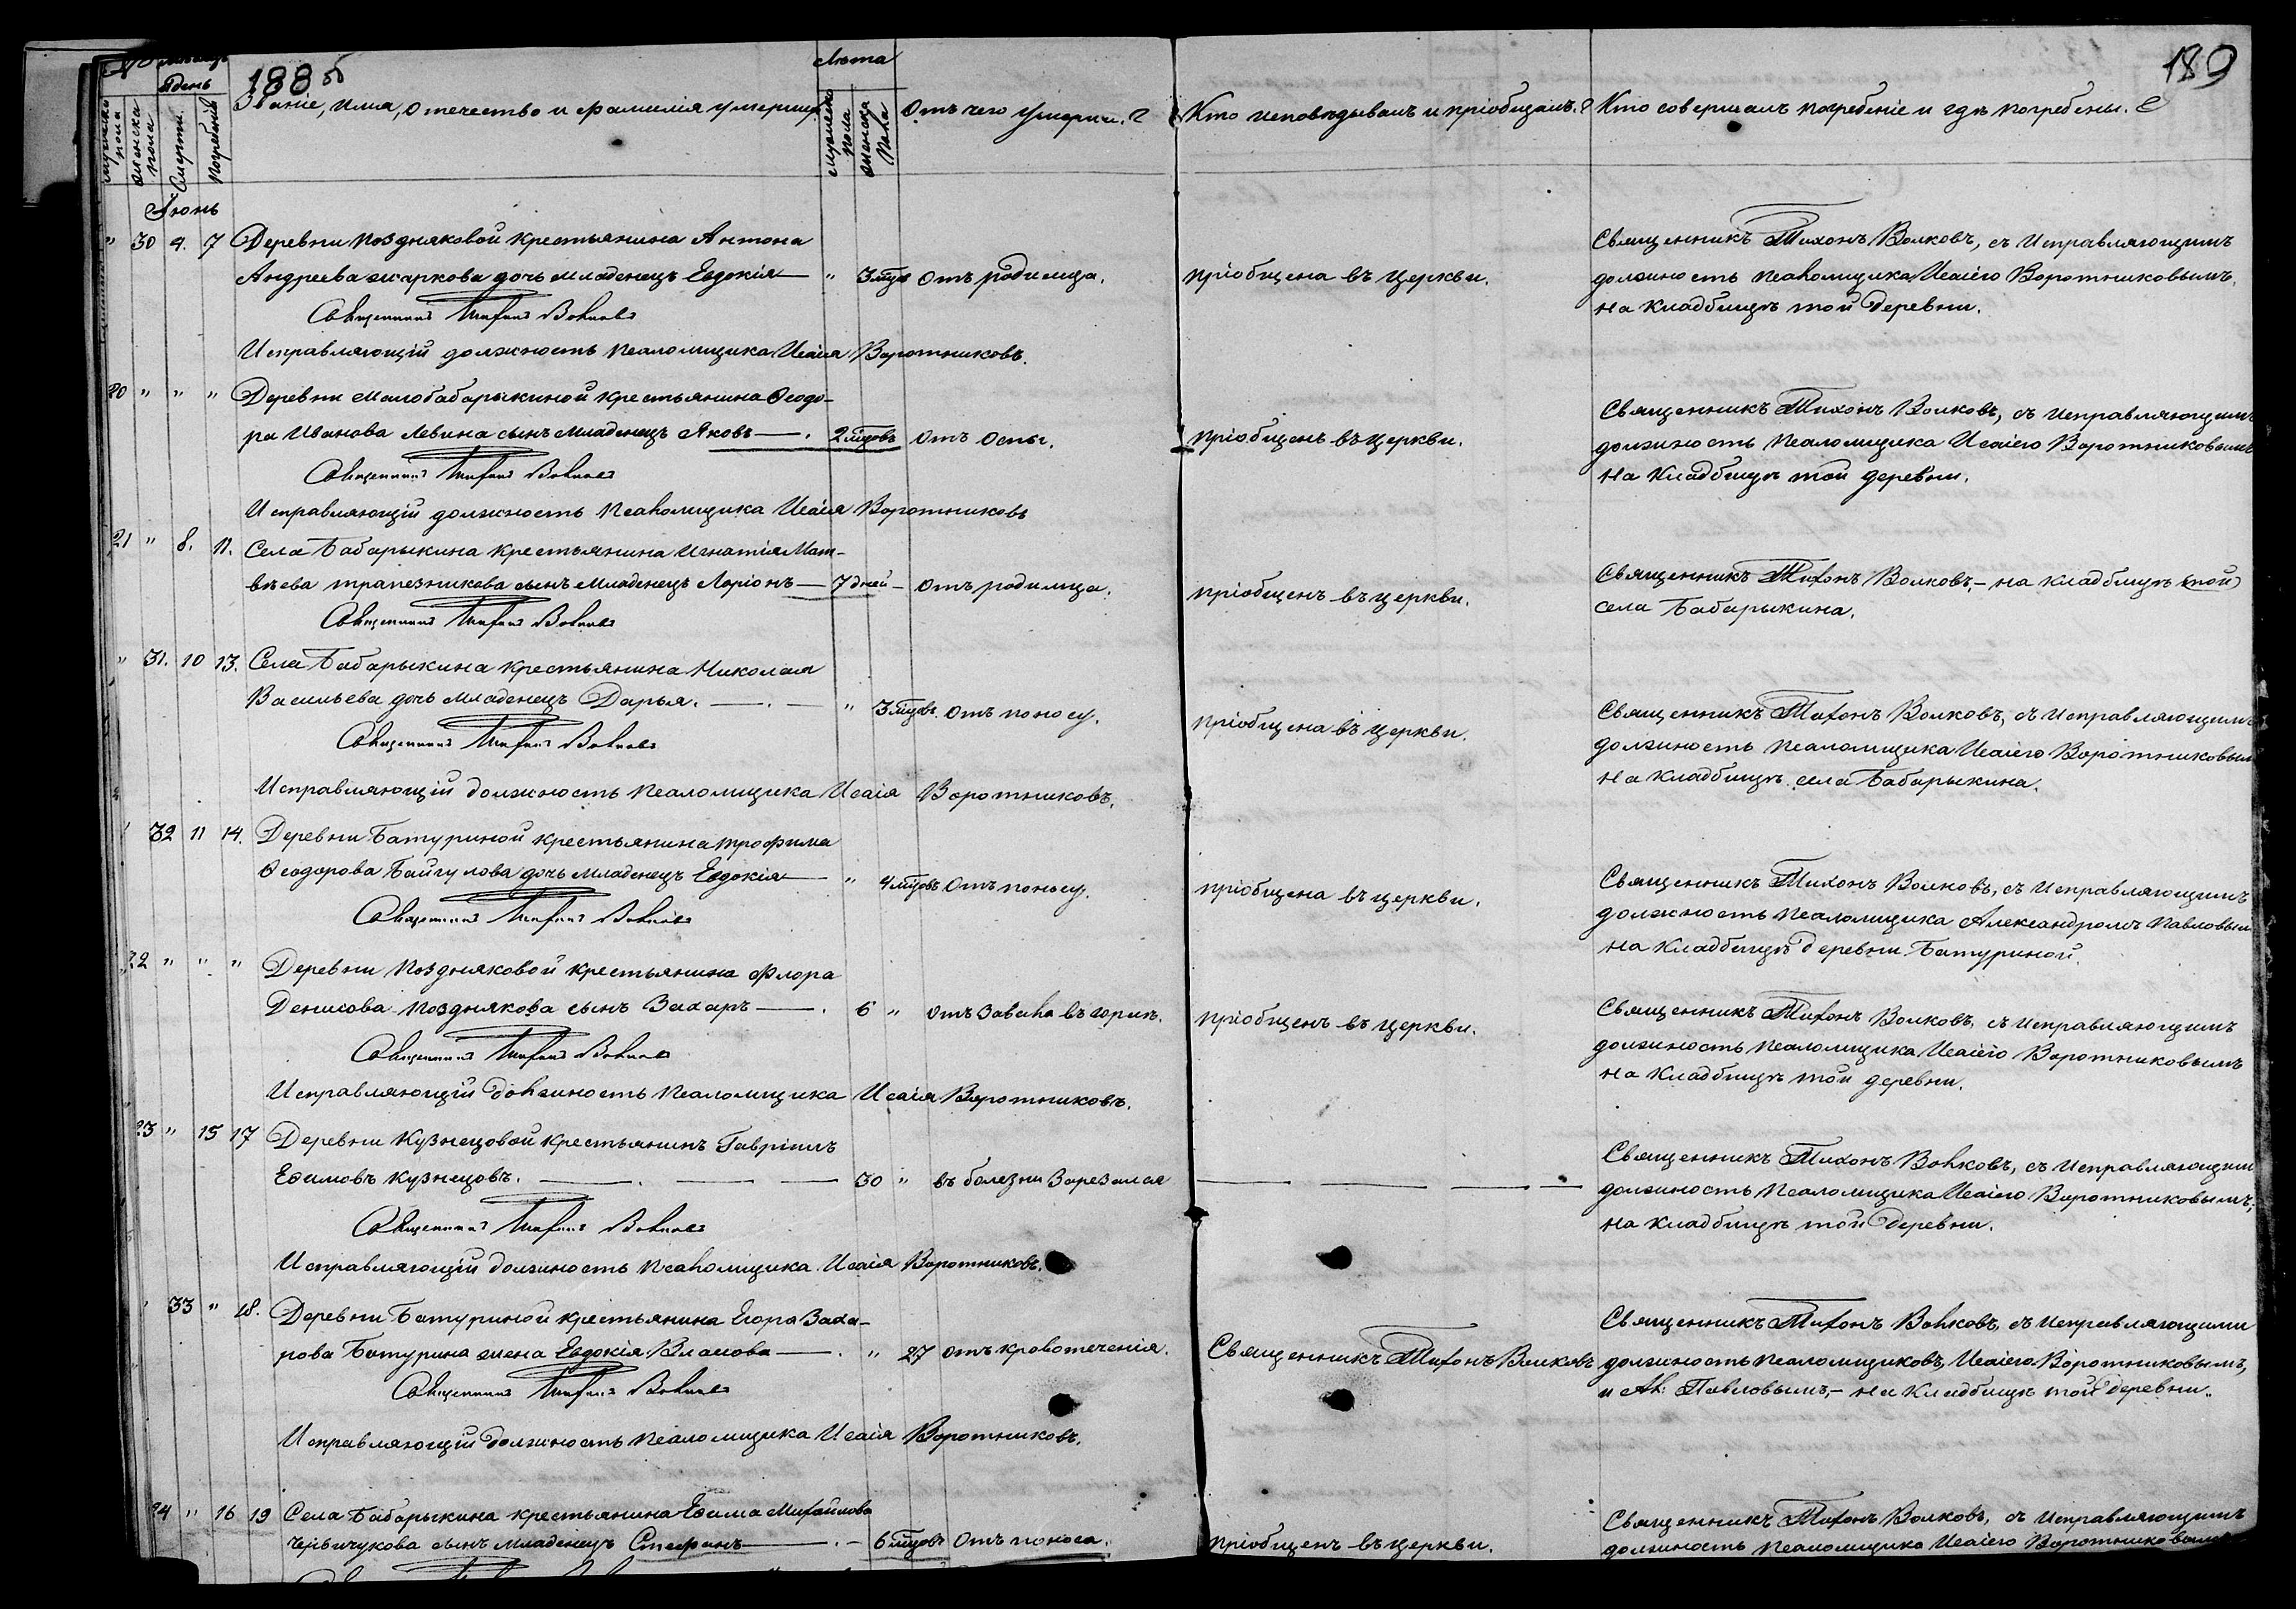 188 об
189
№
Мѣсяцъ
и день
Лѣта
мужеска пола
женска пола
Смерти.
погребенія
Званіе, имя, отечество и фамилія умершихъ
мужеска пола
женска пола
Отъ чего умерши.?
Кто исповѣдывалъ и пріобщалъ.?
Кто совершалъ погребеніе и гдѣ погребены.
Іюнь
" 30 4. 7 Деревни Поздняковой крестьянина Антона
Андреева Жаркова дочь младенецъ Евдокія — " 3 мѣцъ Отъ родимца. пріобщена въ церкви.
Священникъ Тихонъ Волковъ
Исправляющій должность псаломщика Исаія Воротниковъ.
Священникъ Тихонъ Волковъ, съ Исправляющимъ
должность псаломщика Исаіею Воротниковымъ.
на кладбищѣ той деревни.
20 " " " Деревни Малобабарыкиной крестьянина Ѳеодо-
ра Иванова Левина сынъ младенецъ Яковъ —. 2 мѣцовъ Отъ Оспы. пріобщенъ въ церкви.
Священникъ Тихонъ Волковъ
Исправляющій должность псаломщика Исаія Воротниковъ
Священникъ Тихонъ Волковъ, съ исправляющимъ
должность псаломщика Исаіею Воротниковымъ
на кладбищѣ той деревни.
21 " 8. 11. Села Бабарыкина крестьянина Игнатія Мат-
вѣева Трапезникова сынъ младенецъ Ларіонъ — 7 дней — Отъ родимца. пріобщенъ въ церкви.
Священникъ Тихонъ Волковъ
Священникъ Тихонъ Волковъ, – на кладбищѣ (той)
села Бабарыкина.
" 31. 10 13. Села Бабарыкина крестьянина Николая
Васильева дочь младенецъ Дарья. —. — " 3 мѣцовъ. Отъ поносу. пріобщена въ церкви.
Священникъ Тихонъ Волковъ
Исправляющій должность псаломщика Исаія Воротниковъ.
Священникъ Тихонъ Волковъ, съ Исправляющимъ
должность псаломщика Исаіею Воротниковым
на кладбищѣ села Бабарыкина.
32 11 14. Деревни Батуриной крестьянина Трофима
Ѳеодорова Байгулова дочь младенецъ Евдокія — " 4 мѣцовъ Отъ поносу. пріобщена въ церкви.
Священникъ Тихонъ Волковъ
Священникъ Тихонъ Волковъ, съ Исправляющимъ
должность псаломщика Александромъ Павловым
на кладбищѣ деревни Батуриной.
22 " " " Деревни Поздняковой крестьянина Флора
Денисова Позднякова сынъ Захаръ —. 6 " Отъ завала въ горлѣ. пріобщенъ въ церкви.
Священникъ Тихонъ Волковъ
Исправляющій должность псаломщика Исаія Воротниковъ.
Священникъ Тихонъ Волковъ, съ исправляющимъ
должность псаломщика Исаіею Воротниковымъ
на кладбищѣ той деревни.
23 " 15 17 Деревни Кузнецовой крестьянинъ Гавріилъ
Ефимовъ Кузнецовъ. —. — — 30 " въ болезни Зарезался — — — —
Священникъ Тихонъ Волковъ
Исправляющій должность псаломщика Исаія Воротниковъ.
Священникъ Тихонъ Волковъ, съ Исправляющим
должность псаломщика Исаіею Воротниковымъ;
на кладбищѣ той деревни.
33 " 18. Деревни Батуриной крестьянина Егора Заха-
рова Батурина жена Евдокія Власова —. " 27 Отъ кровотеченія. Священникъ Тихонъ Волковъ
Священникъ Тихонъ Волковъ
Исправляющій должность псаломщика Исаія Воротниковъ.
Священникъ Тихонъ Волковъ, съ исправляющими
должность псаломщиковъ, Исаіею Воротниковымъ,
и Ал: Павловымъ, – на кладбищѣ той деревни.
24 " 16 19 Села Бабарыкина крестьянина Ефима Михайлова
сынъ младенецъ Стефанъ —. – 6 мѣцовъ Отъ поноса. пріобщенъ въ церкви.
Священникъ Тихонъ Волковъ, съ Исправляющимъ
должность псаломщика Исаіею Воротниковымъ